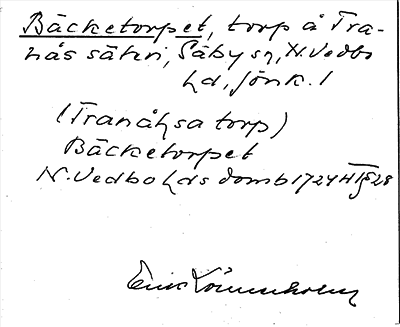 Bäcketorpet, torp å Tra-
nås säteri, Säby sn, N. Vedbo
hd, Jönk. l
(Tranåhsa torp)
Bäcketorpet
N. Vedbo hds domb 1724 HT § 28
Eric